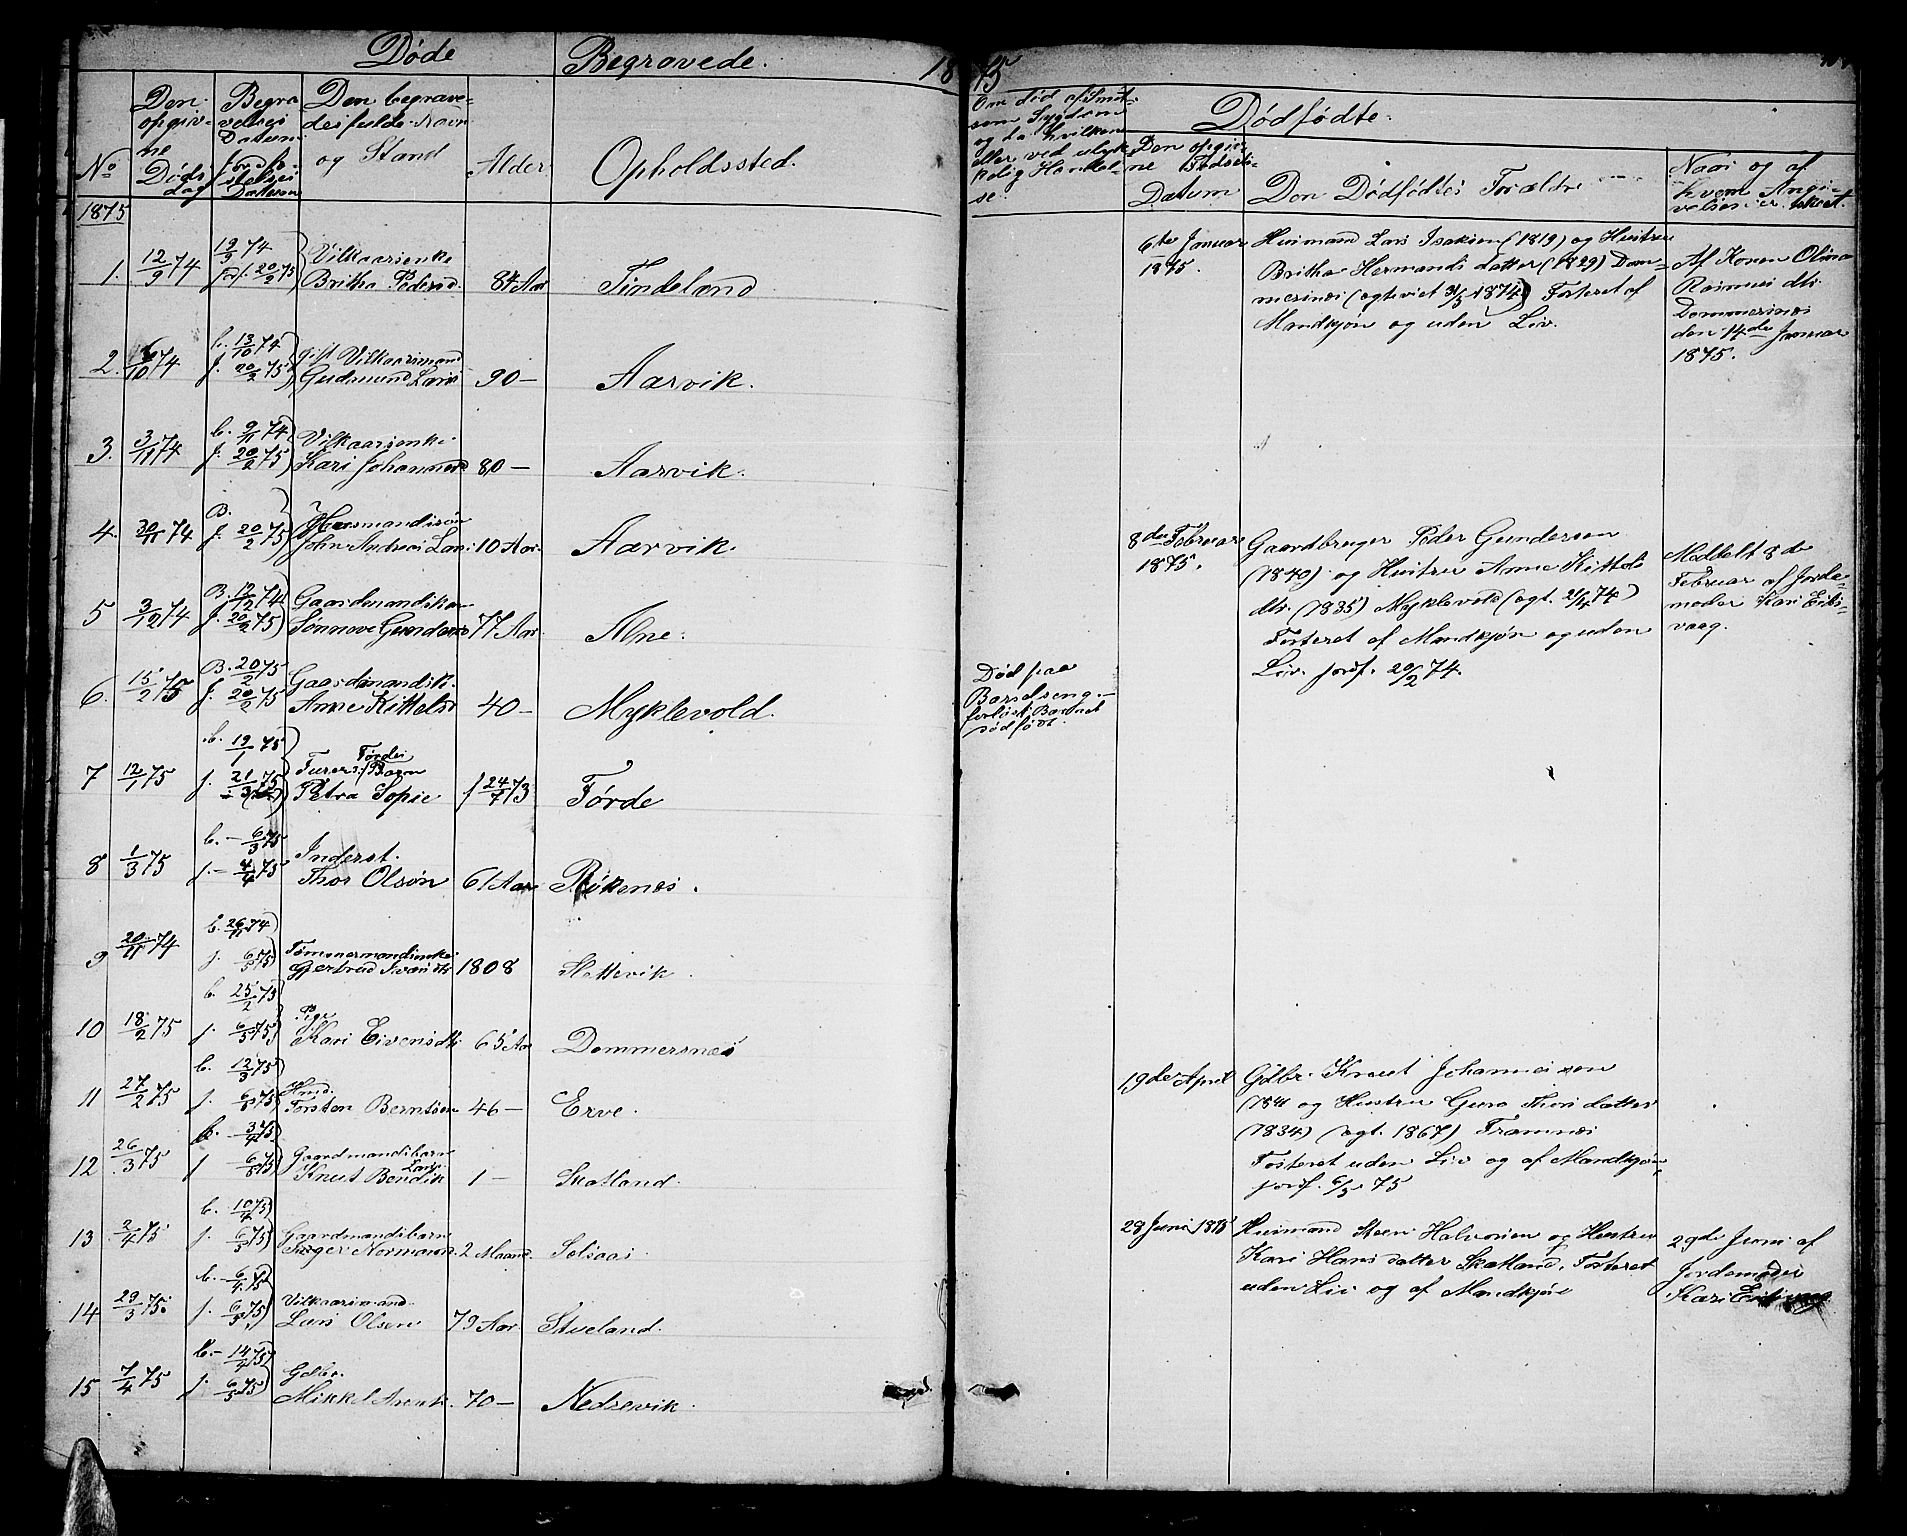 Døde Begravede. 18
No
Den opgivne Døds dag
Begravelses Datum
Jordfæstelses Datum
Den begravedes fulde Navn og Stand
Alder
Opholdssted.
1875
1. 12/9 74 19/9 74 jordf. 20/2 75 Vilkaarsenke
Britha Pedersd. 84 Aar Tindeland
2. 6/10 74 b. 13/10 74 j. 20/2 75 gift Vilkaarsmand
Gudmund Lars 90 — Aarvik.
3. 3/11 74 b. 9/11 74 j. 20/2 75 Vilkaarsenke
Kari Johannesd 80 — Aarvik.
4. 30/11 74 B. j. 20/2 75 Huusmandssøn
John Andreas Lars 10 Aar Aarvik.
5 3/12 74 B. 12/12 74 j. 20/2 75 Gaardmandskone
Sønneve Gunders 77 Aar Alne.
6. 15/2 75 B. 20/2 75 j. 20/2 75 Gaardmandsk.
Anne Kittelsd 40 — Myklevold.
7 12/1 75 b. 19/1 75 j. 21/3 75 Furer Førdes Barn
Petra Sofie f 24/7 73 Førde
8 1/3 75 b. — 6/3 75 j. — 4/4 75 Inderst.
Thor Olsøn 61 Aar Røkenes.
9 20/11 74 b. 26/11 74 j. 6/5 75 Tømmermandsenke
Gjertrud Ivarsdtr 1808 Slettevik.
10 18/2 75 b. 25/2 75 j. 6/5 75 Pige
Kari Eivensdtr 65 Aar Dommersnes
11 27/2 75 b. 12/3 75 j. 6/5 75 Hmd.
Torsten Berntsen 46 — Erve.
12 26/3 75 b. 3/4 75 j 6/5 75 Gaardmandsbarn
Knut Bendik Lars. 1 — Skatland.
13 2/4 75 b. 10/4 75 j. 6/5 75 Gaardmandsbarn
Inger Normann 2 Maand. Solsaas.
14 29/3 75 b. — 6/4 75 j. 6/5 75 Vilkaarsmand
Lars Olsen 79 Aar. Stueland.
15 7/4 75 b. — 14/4 75 j. 6/5 75 Gdbr.
Mikkel Arent 70 — Nedrevik.
75
Om død af Smitsom Sygdom og da hvilken eller ved ulykkelig Hændelse.
Død paa
Barselseng.
forløst. Barnet
dødfødt.
Dødfødte.
Den opgivne Fødsels
Datum
Den Dødfødtes Forældre
Naar og af
hvem Angivelsen er skeet.
6te Januar
1875.
Husmand Lars Isaksen (1819) og Hustru
Britha Hermandsdatter (1829) Dommersnes (ægteviet 31/5 1874) Fosteret af
Mandkjøn og uden Liv.
Af Konen Olina
Rasmusdtr.
Dommersnes
den 14de Januar
1875.
8de Februar
1875.
Gaardbruger Peder Gundersen
(1840) og Hustru Anne Kittels
dtr. (1835) Myklevold (ægt. 21/4 74)
Fosteret af Mandkjøn og uden
Liv. jordf. 20/2 74.
Meddelt 8de
Februar af Jordemoder Kari Eriksvaag.
19de April
Gdbr. Knut Johannessen
(1841 og Hustru Guro Thorsdatter
(1834) (ægt. 1867) Framnes
Fosteret uden Liv og af Mandkjøn,
jordf. 6/5 75
28 Juni 1875
Husmand Steen Halvorsen og Hustru
Kari Hansdatter Skatland. Fosteret
uden Liv og af Mandkjøn
29de Juni af
Jordemoder
Kari Eriksvaag